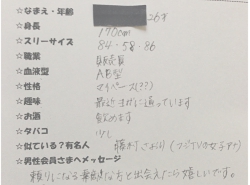 ☆なまえ・年齢 26才
☆身長 170cm
☆スリーサイズ 84・58・86
☆職業 販売員
☆血液型 AB型
☆性格 マイペース(??)
☆趣味 最近ヨガに通っています
☆お酒 飲めます
☆タバコ 少し
☆似ている?有名人 (フジTVの女子アナ)
☆男性会員さまへメッセージ
頼りになる な方と出会えたら嬉しいです。